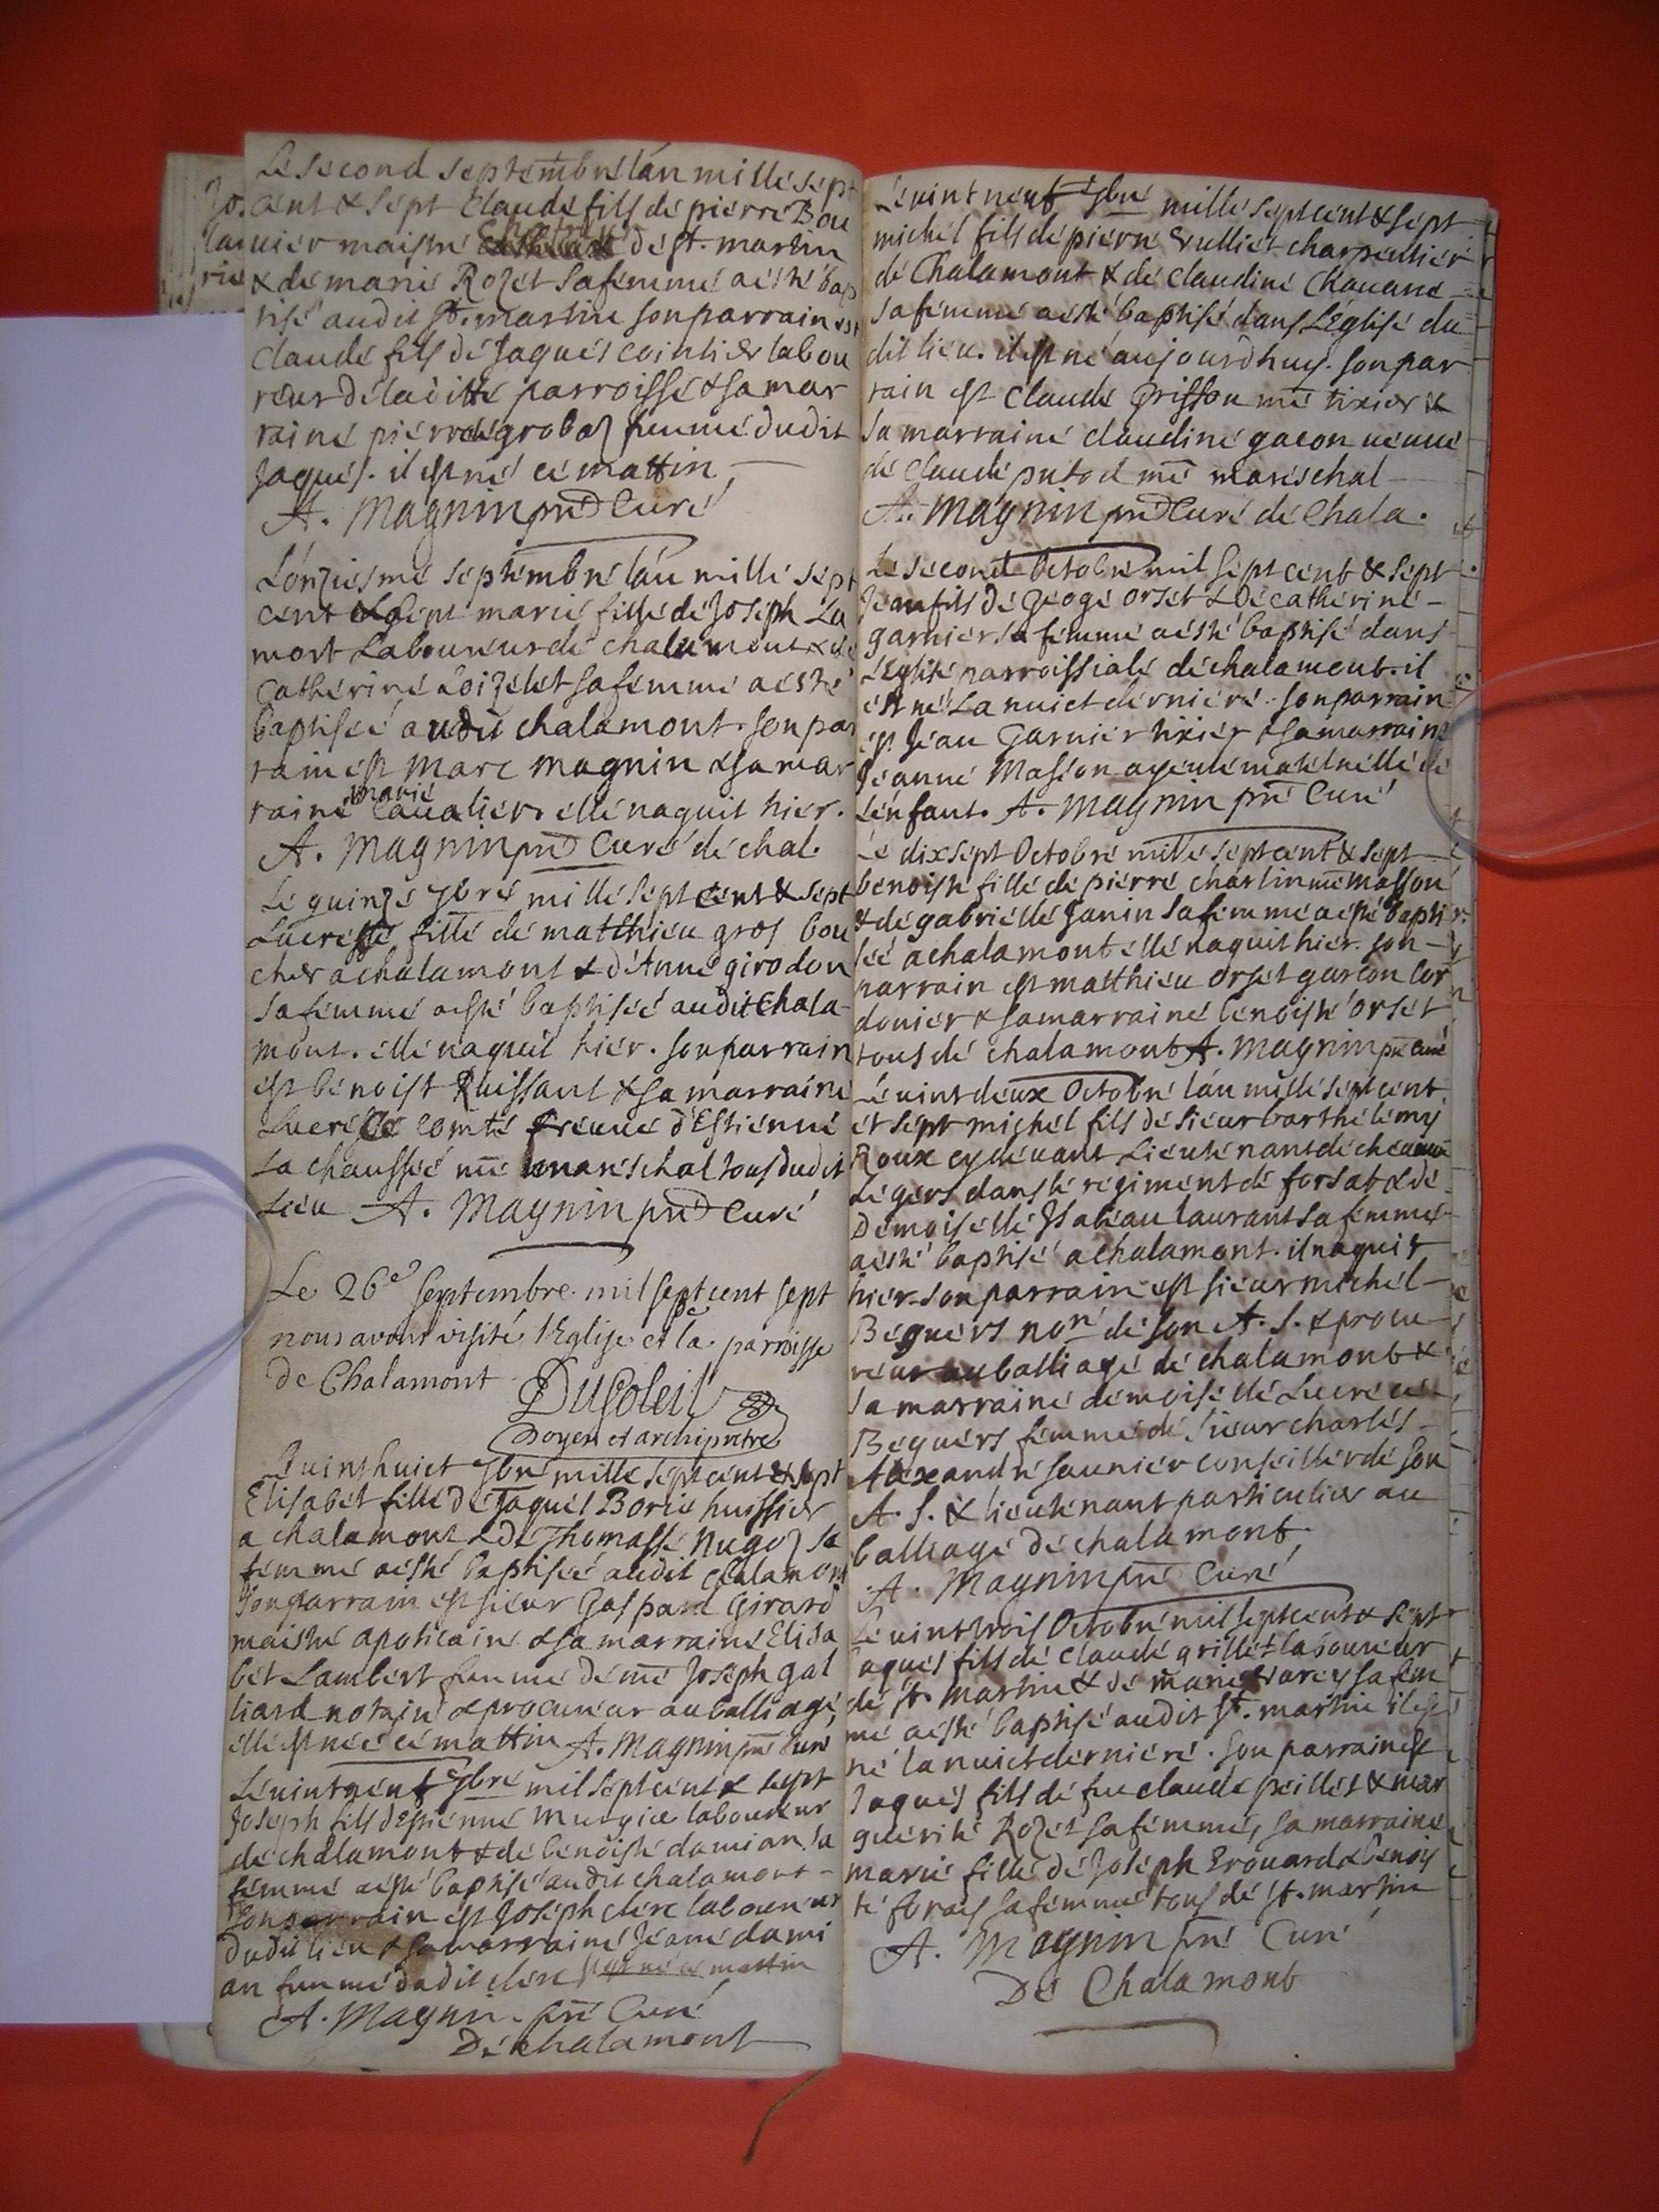 Le second septembre lan mille sept
cent & sept Claude fils de pierre Bou
lanvier maistre de st. martin
& de marie Rozet sa femme a esté bap
tisé audit st. martin son parrain est
Claude fils de Jaques cointier labou
reur de laditte parroisse & sa mar
raine pierre grobaz femme dudit
Jaques. il est né ce mattin
A. Magnin pre Curé
L'onziesme septembre lan mille sept
cent & sept marie fille de Joseph La
mort Laboureur de chalamont & de
Catherine Loizelet sa femme a esté
baptisée audit chalamont. son par
rain est Marc Magnin & sa mar
raine marie Cavalier. elle naquit hier.
A. Magnin pre Curé de chal.
Le quinze 7bre mille sept cent & sept
Lucresse fille de matthieu gros bou
cher a chalamont & d'Anne girodon
sa femme a esté baptisée audit Chala
mont. elle naquit hier. son parrain
est benoist Ruissant & sa marraine
Lucresse Comte d'Estienne
La chaussée me mareschal tous dudit
Lieu A. Magnin pre Curé
Le 26e Septembre mil sept cent sept
nous avons visité l'Eglise et la parroisse
de Chalamont
Dusoleil
Doyen et archipretre
Le vint huict 7bre mille sept cent & sept
Elisabet fille de Jaques Borie huissier
a chalamont & de Thomasse Nugoz sa
femme a esté baptisée audit Chalamont
son parrain est sieur Gaspard Girard
maistre apoticaire & sa marraine Elisa
bet Lambert femme de me Joseph gal
liard notaire & procureur au balliage,
elle est née ce mattin A. Magnin pre Curé
Le vint neuf 7bre mil sept cent & sept
Joseph fils d'Estienne laboureur
de chalamont & de benoiste damian sa
femme a esté baptisé audit chalamont
son parrain est Joseph clerc laboureur
dudit lieu & sa marraine Jeane dami
an femme dudit clerc il est né ce mattin
A. Magnin pre Curé
De chalamont
Le vint neuf 7bre mille sept cent & sept
michel fils de pierre Vulliet charpentier
de Chalamont & de Claudine Chavane
sa femme a esté baptisé dans L'Eglise du
dit lieu. il est né aujourdhuy. son par
rain est Claude Grisson me tixier &
sa marraine claudine gacon veuve
de Claude putod me mareschal
A. Magnin pre Curé de Chala.
Le second Octobre mil sept cent & sept
Jean fils de George orset & de catherine
garnier sa femme a esté baptisé dans
L'Eglise parroissiale de chalamont. il
est né La nuict derniere. son parrain
est Jean Garnier tixier & sa marraine
Jeanne Masson ayeule maternelle de
L'enfant. A. Magnin pre Curé
Le dix sept Octobre mille sept cent & sept
benoiste fille de pierre charlin me masson
& de gabrielle Janin sa femme a esté bapti
sée a chalamont elle naquit hier. son
parrain est matthieu orset garcon cor
donier & sa marraine benoiste orset
tous de chalamont A. Magnin pre Curé
Le vint deux Octobre lan mille sept cent
et sept michel fils de sieur barthelemy
Roux cy devant Lieutenant de chevaux
Legers dans le regiment de forsat & de
Demoiselle Isabeau laurant sa femme
a esté baptisé a chalamont. il naquit
hier. son parrain est sieur michel
Beguers nore de son A. S. & procu
reur au balliage de chalamont &
sa marraine demoiselle Lucrece
Beguers femme de sieur charles
Alexandre saunier conseiller de son
A. S. & lieutenant particulier au
balliage de chalamont.
A. Magnin pre Curé
Le vint trois Octobre mil sept cent & sept
Jaques fils de Claude grillet laboureur
de st. martin & de marie varey sa fem
me a esté baptisé audit st. martin il est
né la nuict derniere. son parrain est
Jaques fils de feu claude peillet & mar
guerite Rozet sa femme, sa marraine
marie fille de Joseph Erouard & benois
te forais sa femme tous de st. martin
A. Magnin pre Curé
De Chalamont